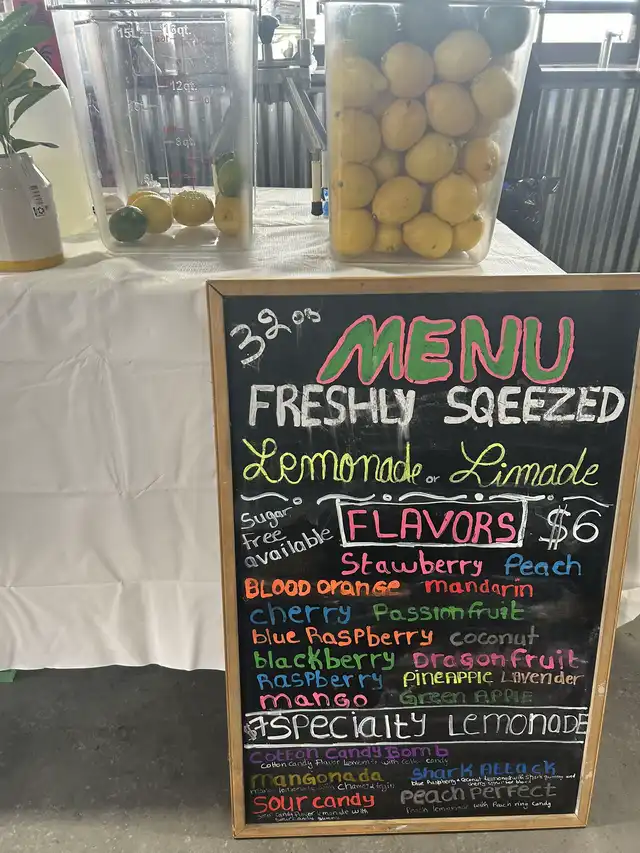 15L 16qt.
12qt.
8qt.
32 oz
MENU
FRESHLY SQEEZED
Lemonade or Limade
Sugar free available
FLAVORS $6
Stawberry Peach
BLOOD orange mandarin
cherry Passionfruit
blue Raspberry coconut
blackberry Dragonfruit
Raspberry PINEAPPLE Lavender
mango Green APPLE
$7 SPECIALTY LEMONADE
cotton candy Bomb
Cotton Candy Flavor Lemonade with cotton candy
mangonada shark ATTACK
Sour candy Peach Perfect
Peach lemonade with Peach ring candy
Sour Candy flavor lemonade with